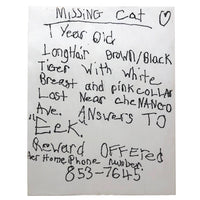 MISSING Cat
1 Year Old
LongHair Brown/Black
Tiger With White
Breast and pink collar
Last Near cheNANGO
Ave. Answers TO
"Eek."
Reward OFFERED
her Home Phone number
853-7645